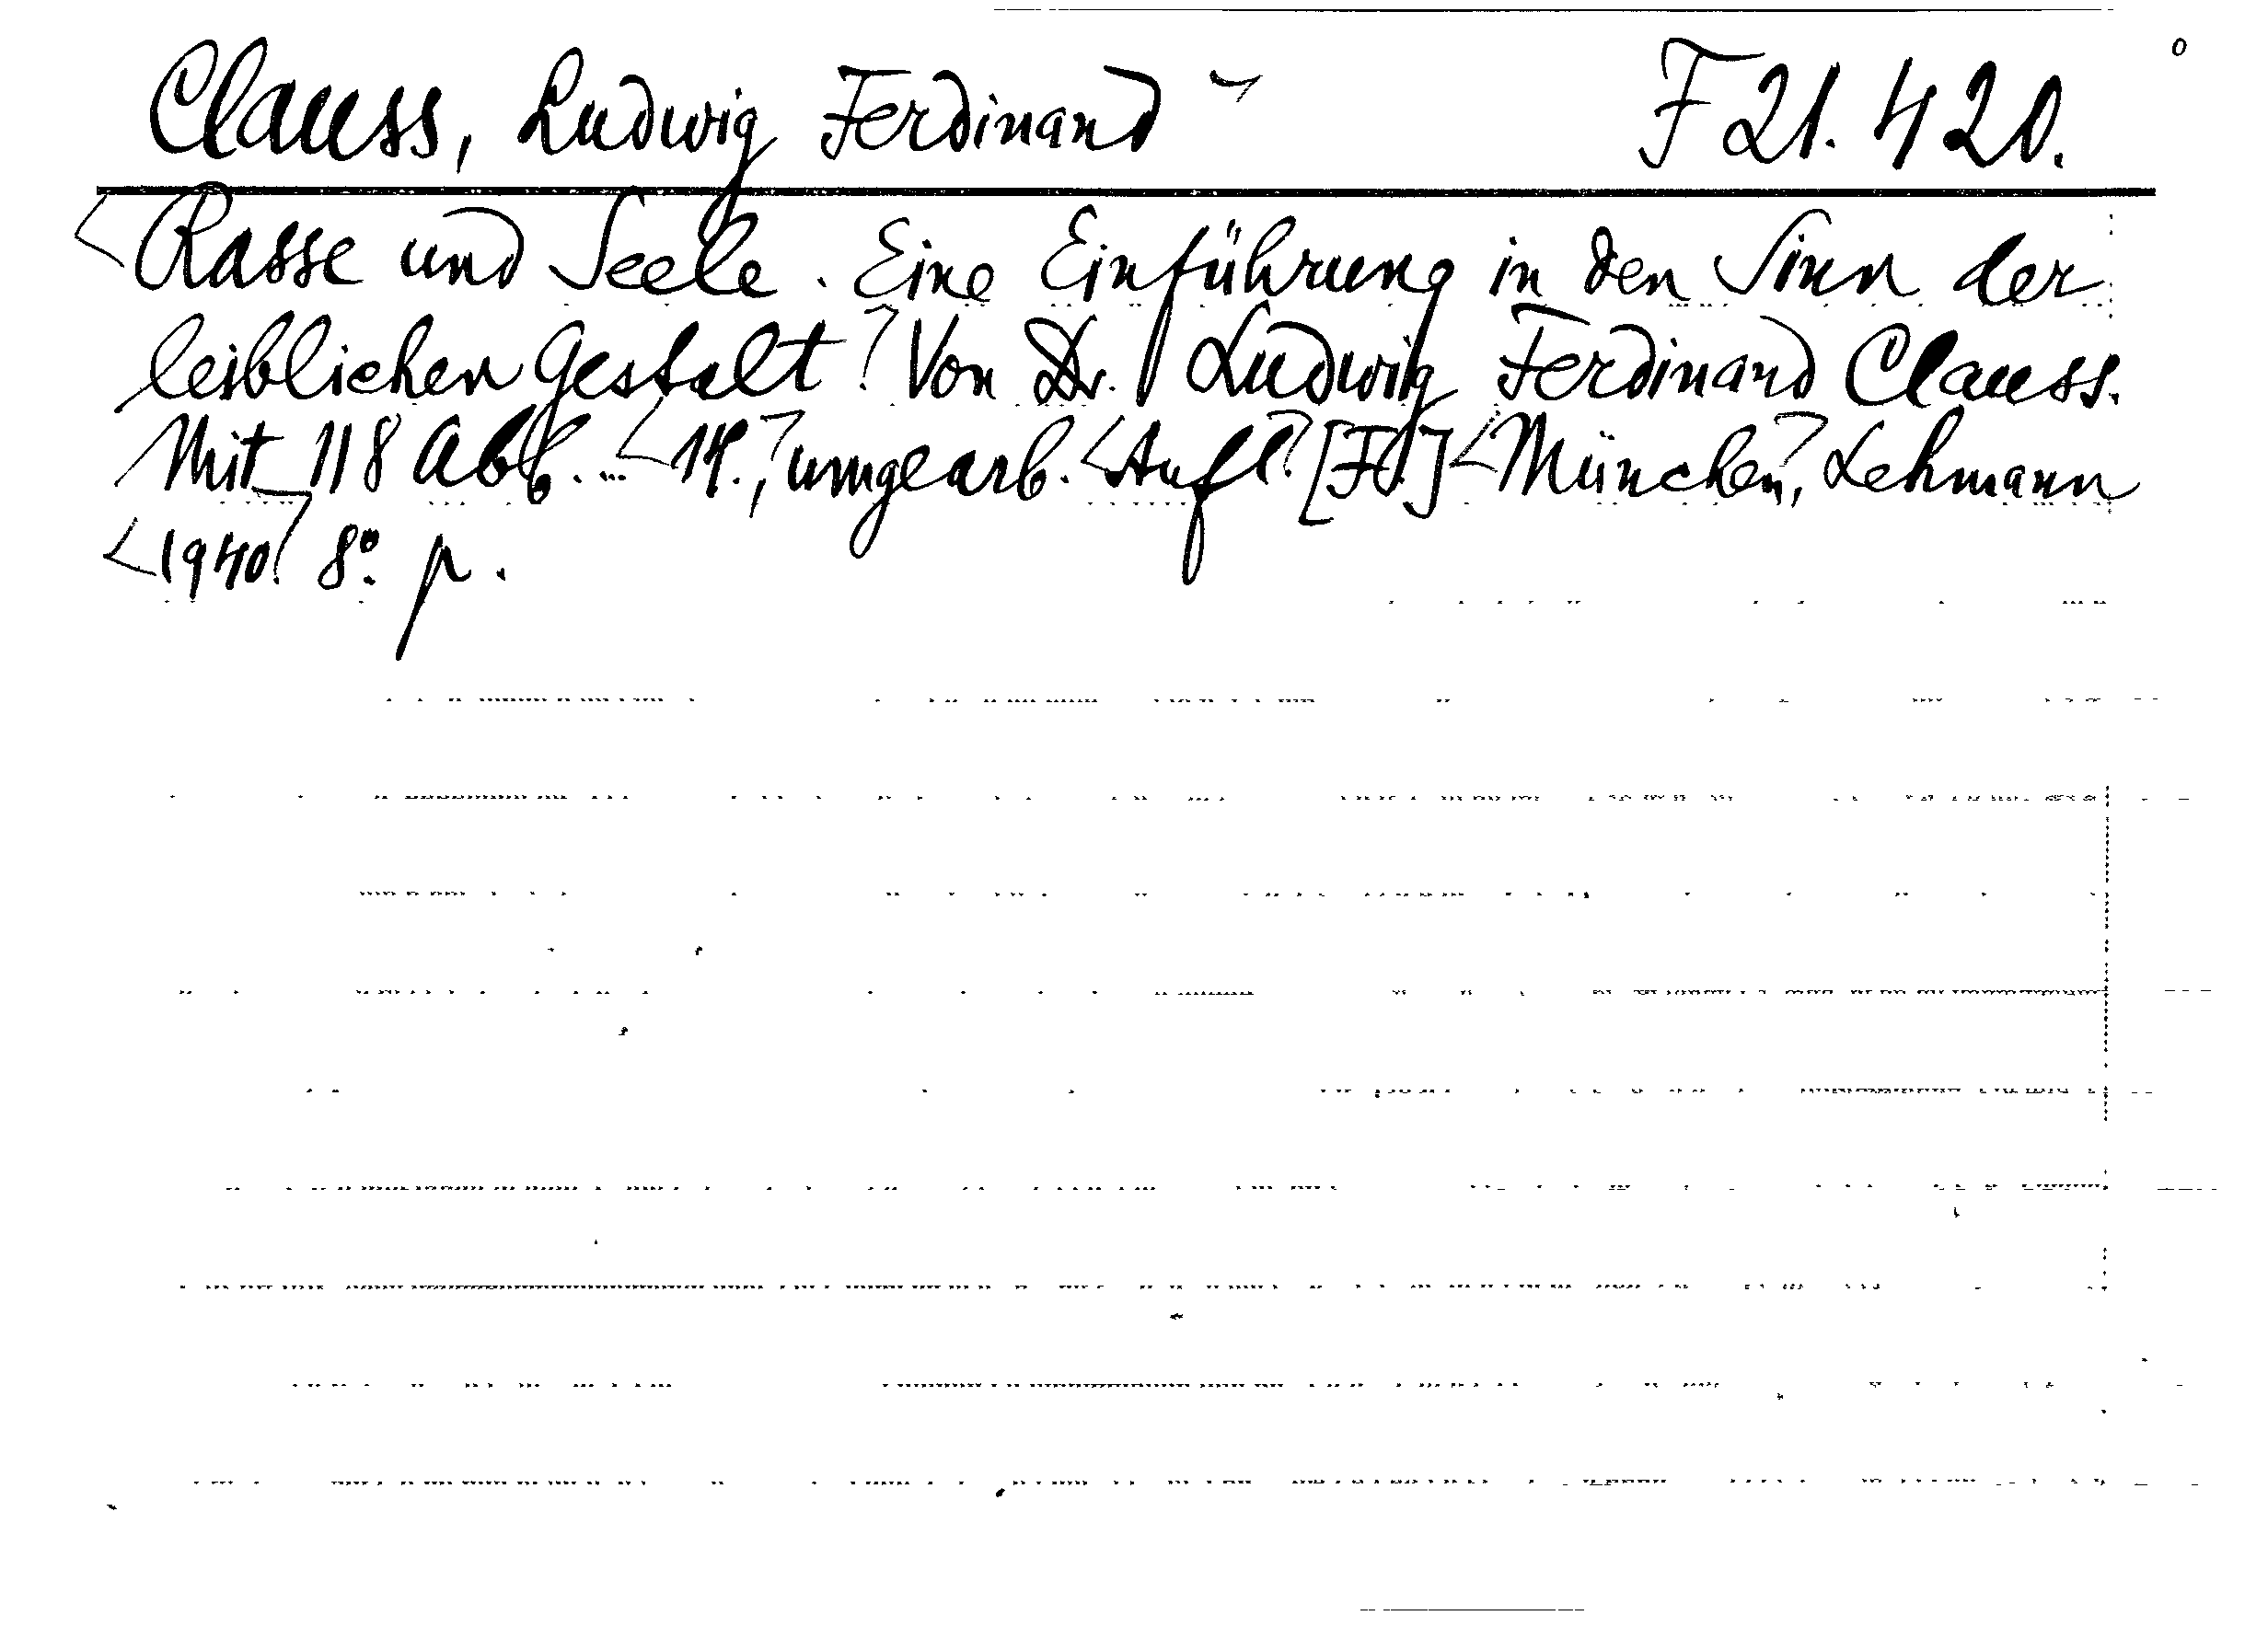 Clauss, Ludwig Ferdinand F 21.420.
Rasse und Seele. Eine Einführung in den Sinn der
leiblichen Gestalt. Von Dr. Ludwig Ferdinand Clauss.
Mit 118 Abb. ... 14., umgearb. Aufl. München, Lehmann
1940. 8°. p.